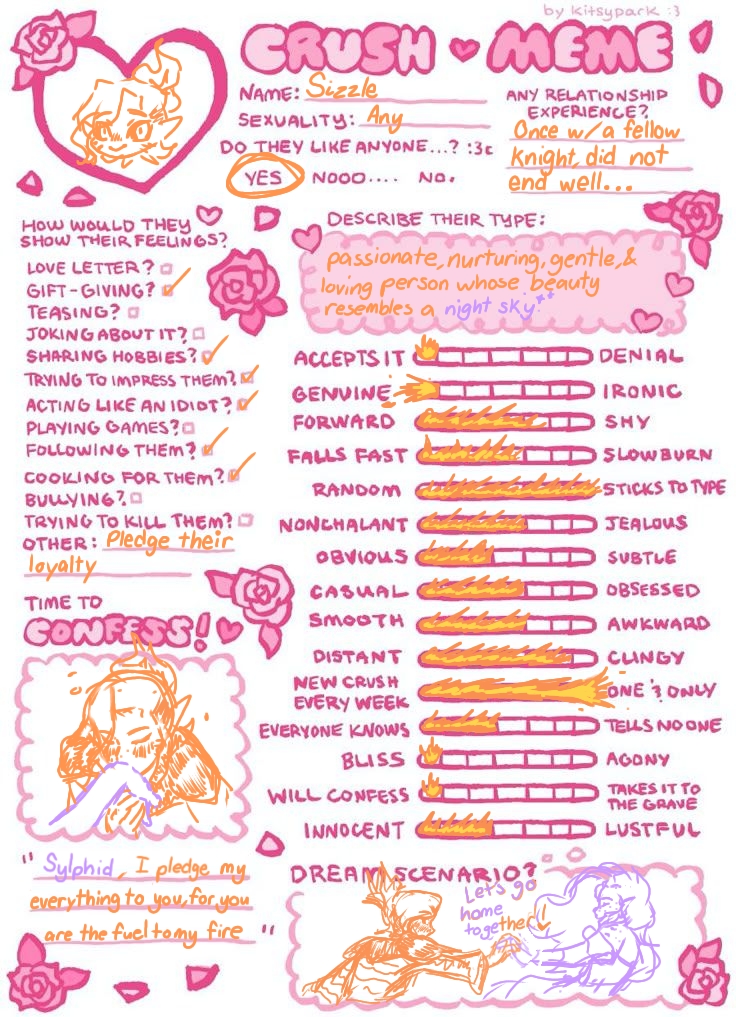 by kitsypark :3
CRUSH MEME
NAME: Sizzle
SEXUALITY: Any
DO THEY LIKE ANYONE...? :3c
YES NOOO.... NO.
ANY RELATIONSHIP
EXPERIENCE?
Once w/a fellow
knight, did not
end well...
HOW WOULD THEY
SHOW THEIR FEELINGS?
LOVE LETTER?
GIFT-GIVING?
TEASING?
JOKING ABOUT IT?
SHARING HOBBIES?
TRYING TO IMPRESS THEM?
ACTING LIKE AN IDIOT?
PLAYING GAMES?
FOLLOWING THEM?
COOKING FOR THEM?
BULLYING?
TRYING TO KILL THEM?
OTHER: Pledge their
loyalty
DESCRIBE THEIR TYPE:
passionate, nurturing, gentle, &
loving person whose beauty
resembles a night sky**
ACCEPTS IT DENIAL
GENUINE IRONIC
FORWARD SHY
FALLS FAST SLOWBURN
RANDOM STICKS TO TYPE
NONCHALANT JEALOUS
OBVIOUS SUBTLE
CASUAL OBSESSED
SMOOTH AWKWARD
DISTANT CLINGY
NEW CRUSH
EVERY WEEK ONE & ONLY
EVERYONE KNOWS TELLS NO ONE
BLISS AGONY
WILL CONFESS TAKES IT TO
THE GRAVE
INNOCENT LUSTFUL
TIME TO
CONFESS!
"Sylphid, I pledge my
everything to you, for you
are the fuel to my fire"
DREAM SCENARIO?
Let's go
home
together!!